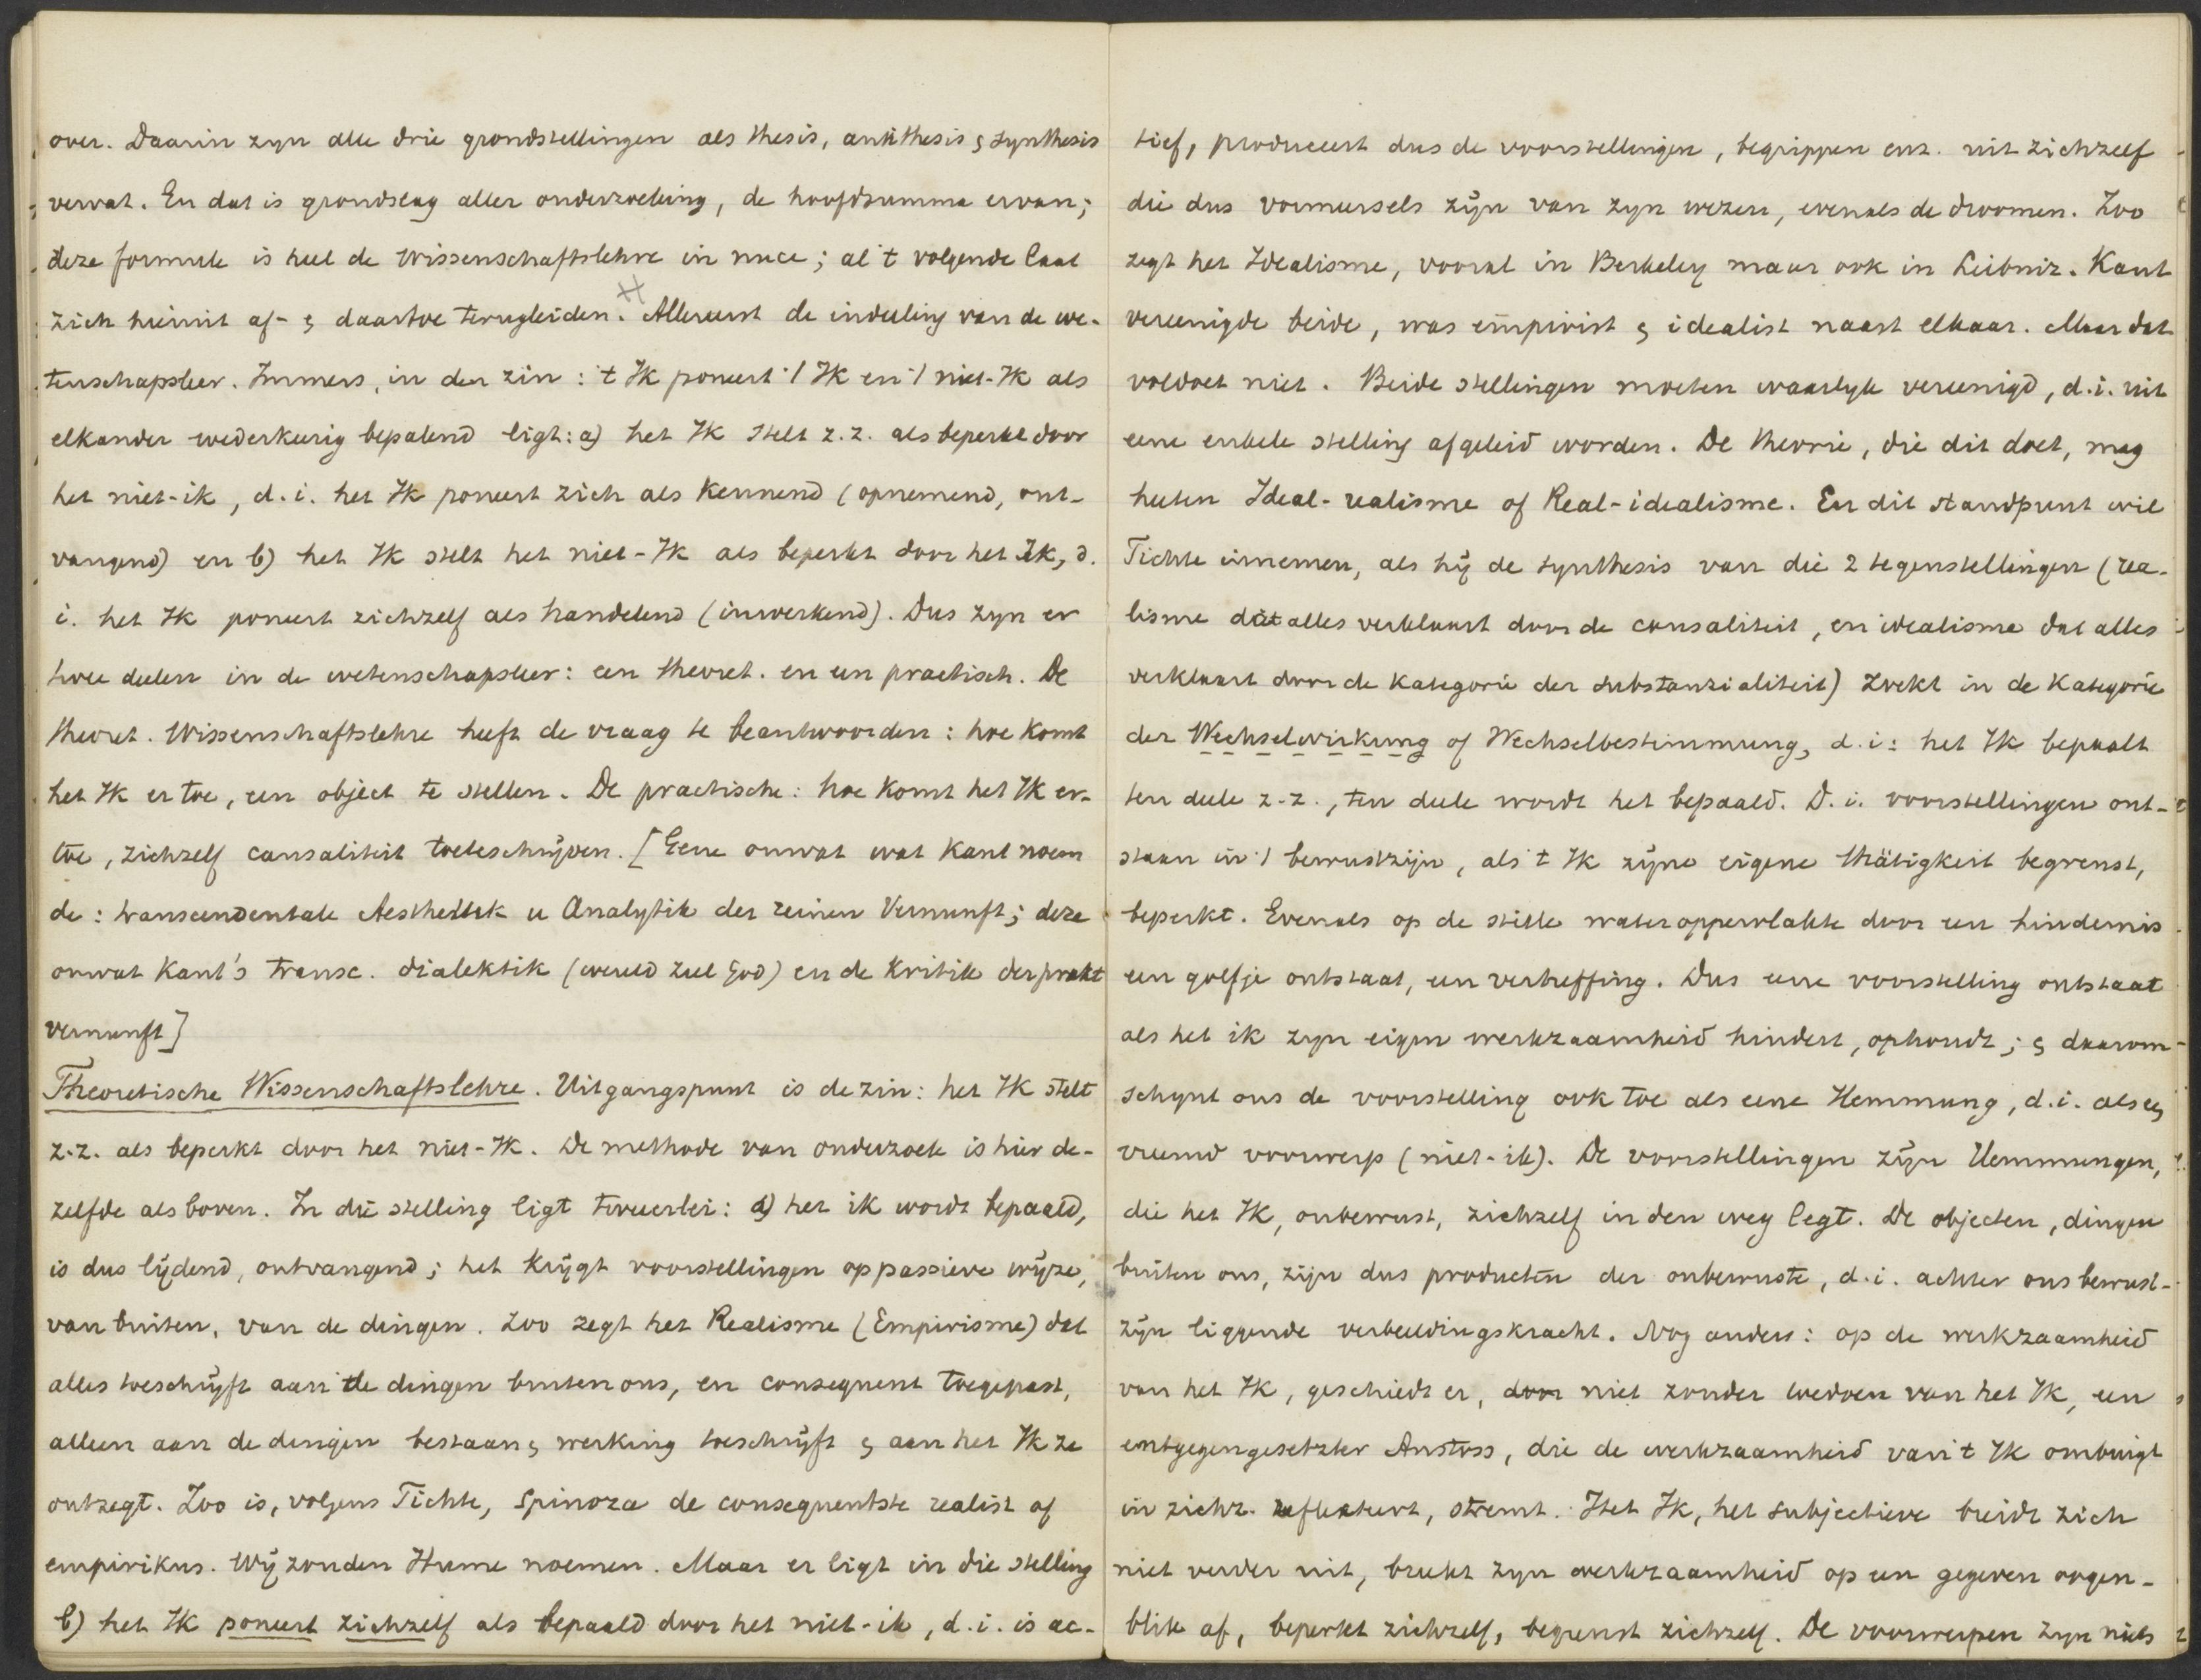 over. Daarin zyn alle drie grondstellingen als thesis, antithesis & synthesis
vervat. En dat is grondslag aller onderzoeking, de hoofdsumma ervan;
deze formule is heel de Wissenschaftslehre in nuce; al 't volgende laat
zich hieruit af- & daartoe terugleiden. Allereerst de indeeling van de we-
tenschapsleer. Immers, in den zin: 't Ik poneert 't Ik en 't niet-Ik als
elkander wederkeerig bepalend ligt: a) het Ik stelt z.z. als beperkt door
het niet-ik, d.i. het Ik poneert zich als kennend (opnemend, ont-
vangend) en b) het Ik stelt het niet-Ik als beperkt door het Ik, d.
i. het Ik poneert zichzelf als handelend (inwerkend). Dus zyn er
twee deelen in de wetenschapsleer: een theoret. en een practisch. De
theoret. Wissenschaftslehre heeft de vraag te beantwoorden: hoe komt
het Ik er toe, een object te stellen. De practische: hoe komt het Ik er-
toe, zichzelf causaliteit toeteschrijven. [Gene omvat wat Kant noem
de: transcendentale Aesthetik u Analytik der reinen Vernunft; deze
omvat Kant's transc. dialektik (wereld ziel God) en de Kritik der prakt
vernunft]
Theoretische Wissenschaftslehre. Uitgangspunt is de zin: het Ik stelt
z.z. als beperkt door het niet-Ik. De methode van onderzoek is hier de-
zelfde als boven. In die stelling ligt tweeerlei: a) het ik wordt bepaald,
is dus lijdend, ontvangend; het krijgt voorstellingen op passieve wijze,
van buiten, van de dingen. Zoo zegt het Realisme (Empirisme) dat
alles toeschrijft aan de dingen buiten ons, en consequent toegepast,
alleen aan de dingen bestaan & werking toeschrijft & aan het Ik ze
ontzegt. Zoo is, volgens Fichte, Spinoza de consequentste realist of
empirikus. Wij zouden Hume noemen. Maar er ligt in die stelling
b) het Ik poneert zichzelf als bepaald door het niet-ik, d.i. is ac-
tief, produceert dus de voorstellingen, begrippen enz. uit zichzelf
die dus vormeersels zijn van zyn wezen, evenals de droomen. Zoo
zegt het Idealisme, vooral in Berkeley maar ook in Leibniz. Kant
vereenigde beide, was empirist & idealist naast elkaar. Maar dat
voldoet niet. Beide stellingen moeten waarlyk vereenigd, d.i. uit
eene enkele stelling afgeleid worden. De theorie, die dit doet, mag
heeten Ideal-realisme of Real-idealisme. En dit standpunt wil
Fichte innemen, als hij de synthesis van die 2 tegenstellingen (rea-
lisme dat alles verklaart door de causaliteit, en idealisme dat alles
verklaart door de kategorie der substanzialiteit) zoekt in de Kategorie
der Wechselwirkung of Wechselbestimmung, d.i: het Ik bepaalt
ten deele z-z., ten deele wordt het bepaald. D.i. voorstellingen ont-
staan in 't bewustzijn, als 't Ik zijne eigene thätigkeit begrenst,
beperkt. Evenals op de stille wateroppervlakte door een hindernis
een golfje ontstaat, een verheffing. Dus eene voorstelling ontstaat
als het ik zyn eigen werkzaamheid hindert, ophoudt; & daarom
schynt ons de voorstelling ook toe als eene Hemmung, d.i. als een
vreemd voorwerp (niet-ik). De voorstellingen zijn Hemmungen,
die het Ik, onbewust, zichzelf in den weg legt. De objecten, dingen
buiten ons, zijn dus producten der onbewuste, d.i. achter ons bewust-
zijn liggende verbeeldingskracht. Nog anders: op de werkzaamheid
van het Ik, geschiedt er, door niet zonder toedoen van het Ik, een
entgegengesetzter Anstoss, die de werkzaamheid van 't Ik ombuigt
in zichz. reflekteert, stremt. Het Ik, het subjectieve breidt zich
niet verder uit, breekt zyn werkzaamheid op een gegeven oogen-
blik af, beperkt zichzelf, begrenst zichzelf. De voorwerpen zyn niets